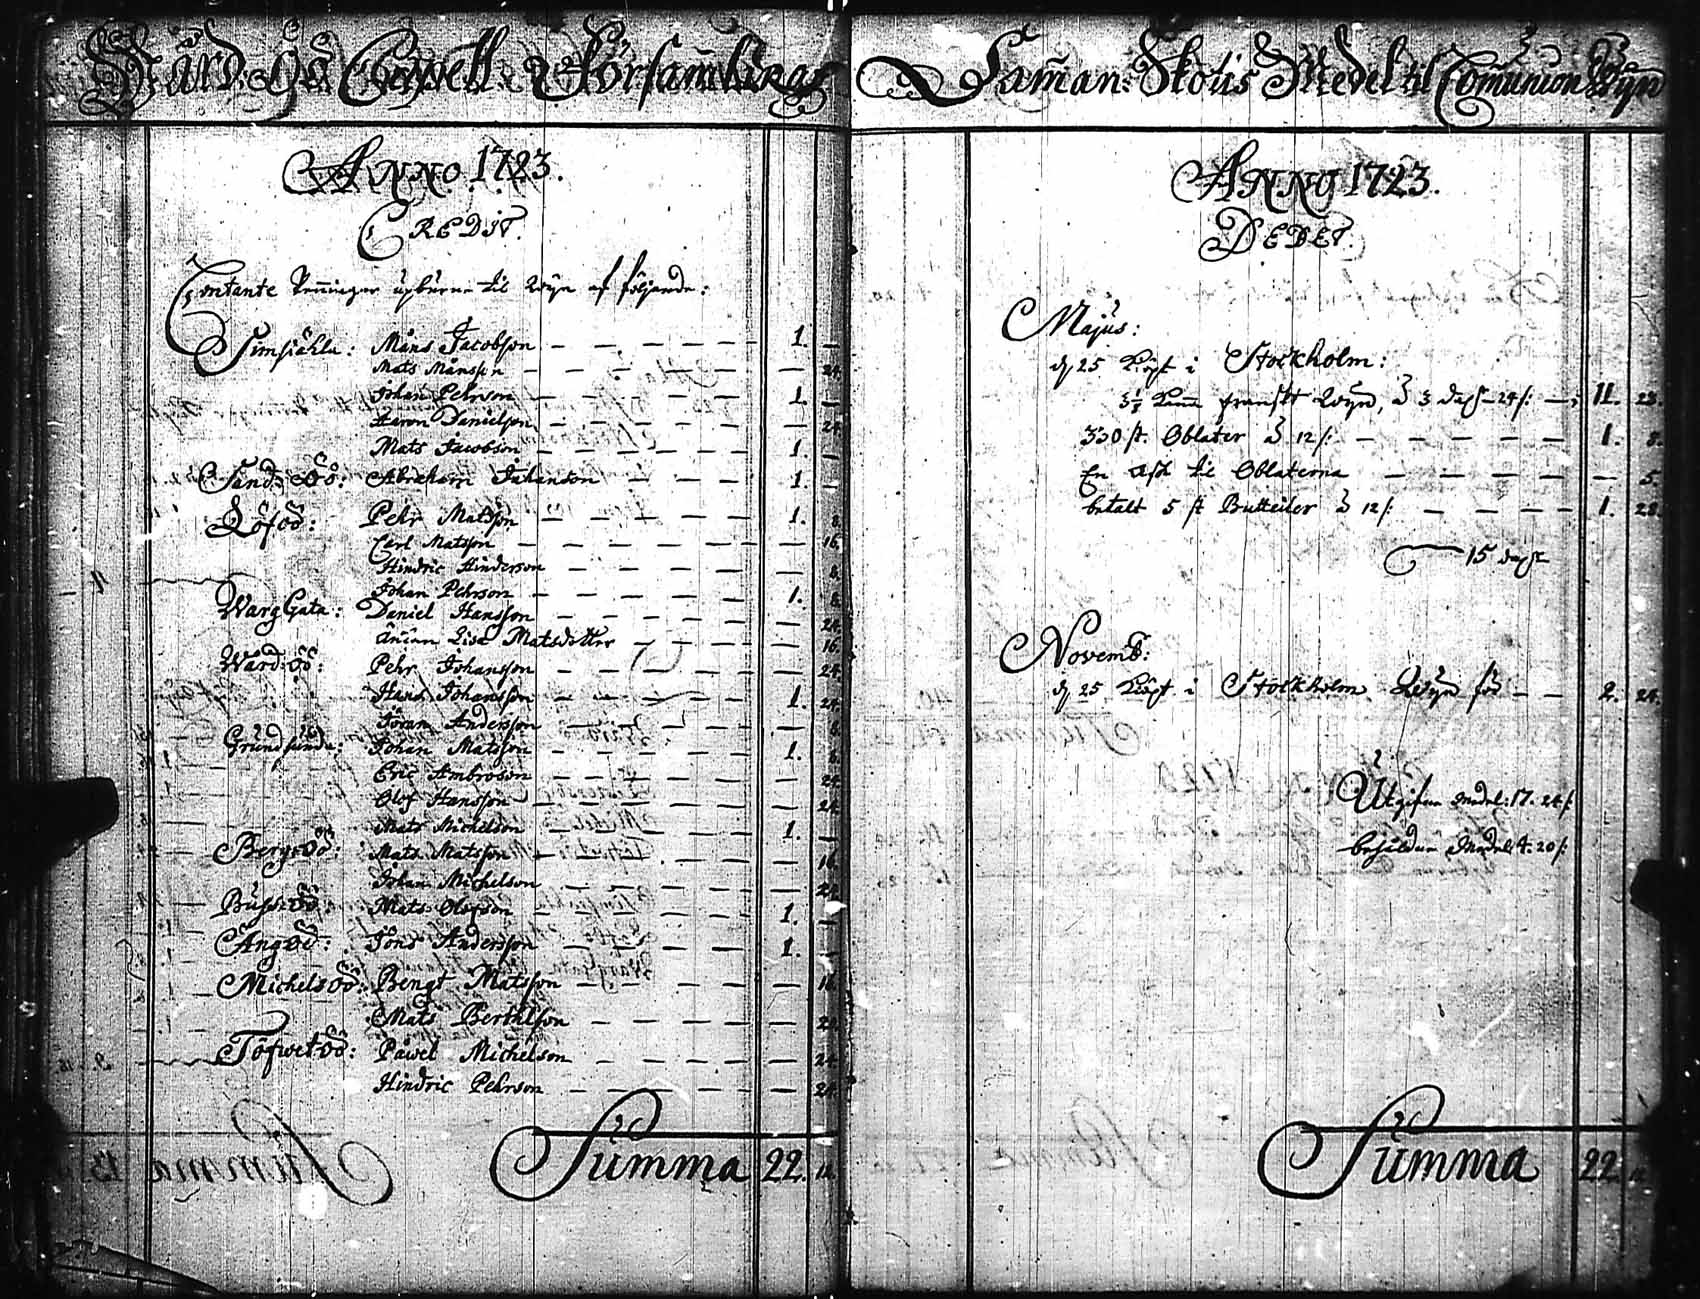 Wård-Öö Capell Församblings Samman-Skotts Medel til Communion Wyn
ANNO 1723.
CREDIT.
Contante Penningar upburne til Wyn af följande:
Simskähla: Måns Jacobson — 1. —
Mats Månsson — — 24.
Johan Pehrson — 1. —
Aaron Danielson — — 24.
Mats Jacobson — 1. —
Sand-Öö: Abraham Johanson — 1. —
Löföö: Pehr Matsson — 1. 8.
Carl Matsson — — 16.
Hindric Hinderson — — 8.
Johan Pehrson — 1. 8.
WargGata: Daniel Hansson — — 24.
Annan Lisa Matsdotter — — 16.
Wårdöö: Pehr Johansson — — 24.
Hans Johansson — 1. 24.
Jöran Andersson — — 8.
Grundsunda: Johan Matsson — 1. 8.
Eric Ambroson — — 24.
Olof Hansson — — 24.
Mats Michelson — 1. —
Bergöö: Mats Matsson — — 16.
Johan Michelson — — 24.
Bussöö: Mats Olofson — 1. —
Ängöö: Jöns Andersson — 1. —
Michelsöö: Bengt Matsson — — 16.
Mats Berthlson — — 20.
Töfwetöö: Påwel Michelson — — 24.
Hindric Pehrson — — 24.
Summa 22. 12.
ANNO 1723.
DEBET.
Majus:
d. 25 Köpt i Stockholm:
3½ Kanna franskt Wyn, à 3 dahl 24/: — 11. 23.
330 st. Oblater à 12/: — 1. 8.
En Ask til Oblaterna — — 5.
betalt 5 st Butteiler à 12/: — 1. 28.
15 dahl
Novemb:
d. 25 Köpt i Stockholm Wyn för — 2. 24.
Utgifne medel: 17. 24/:
behåldne Medel 4. 20/:
Summa 22. 12.